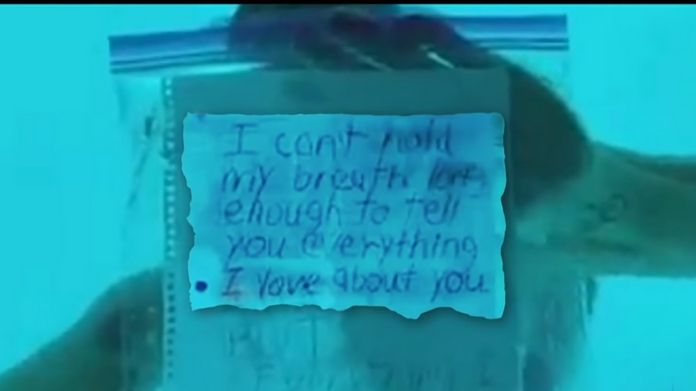 I can't hold
my breath long
enough to tell
you everything
• I love about you